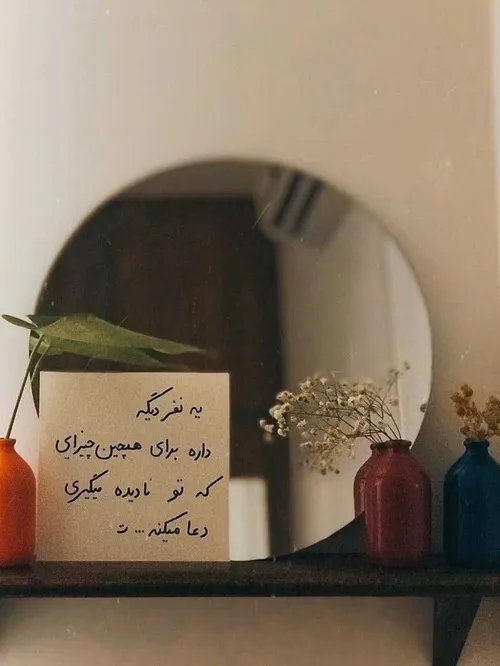 یه نفر دیگه
داره برای همچین چیزایی
که تو نادیده میگیری
دعا میکنه... ت